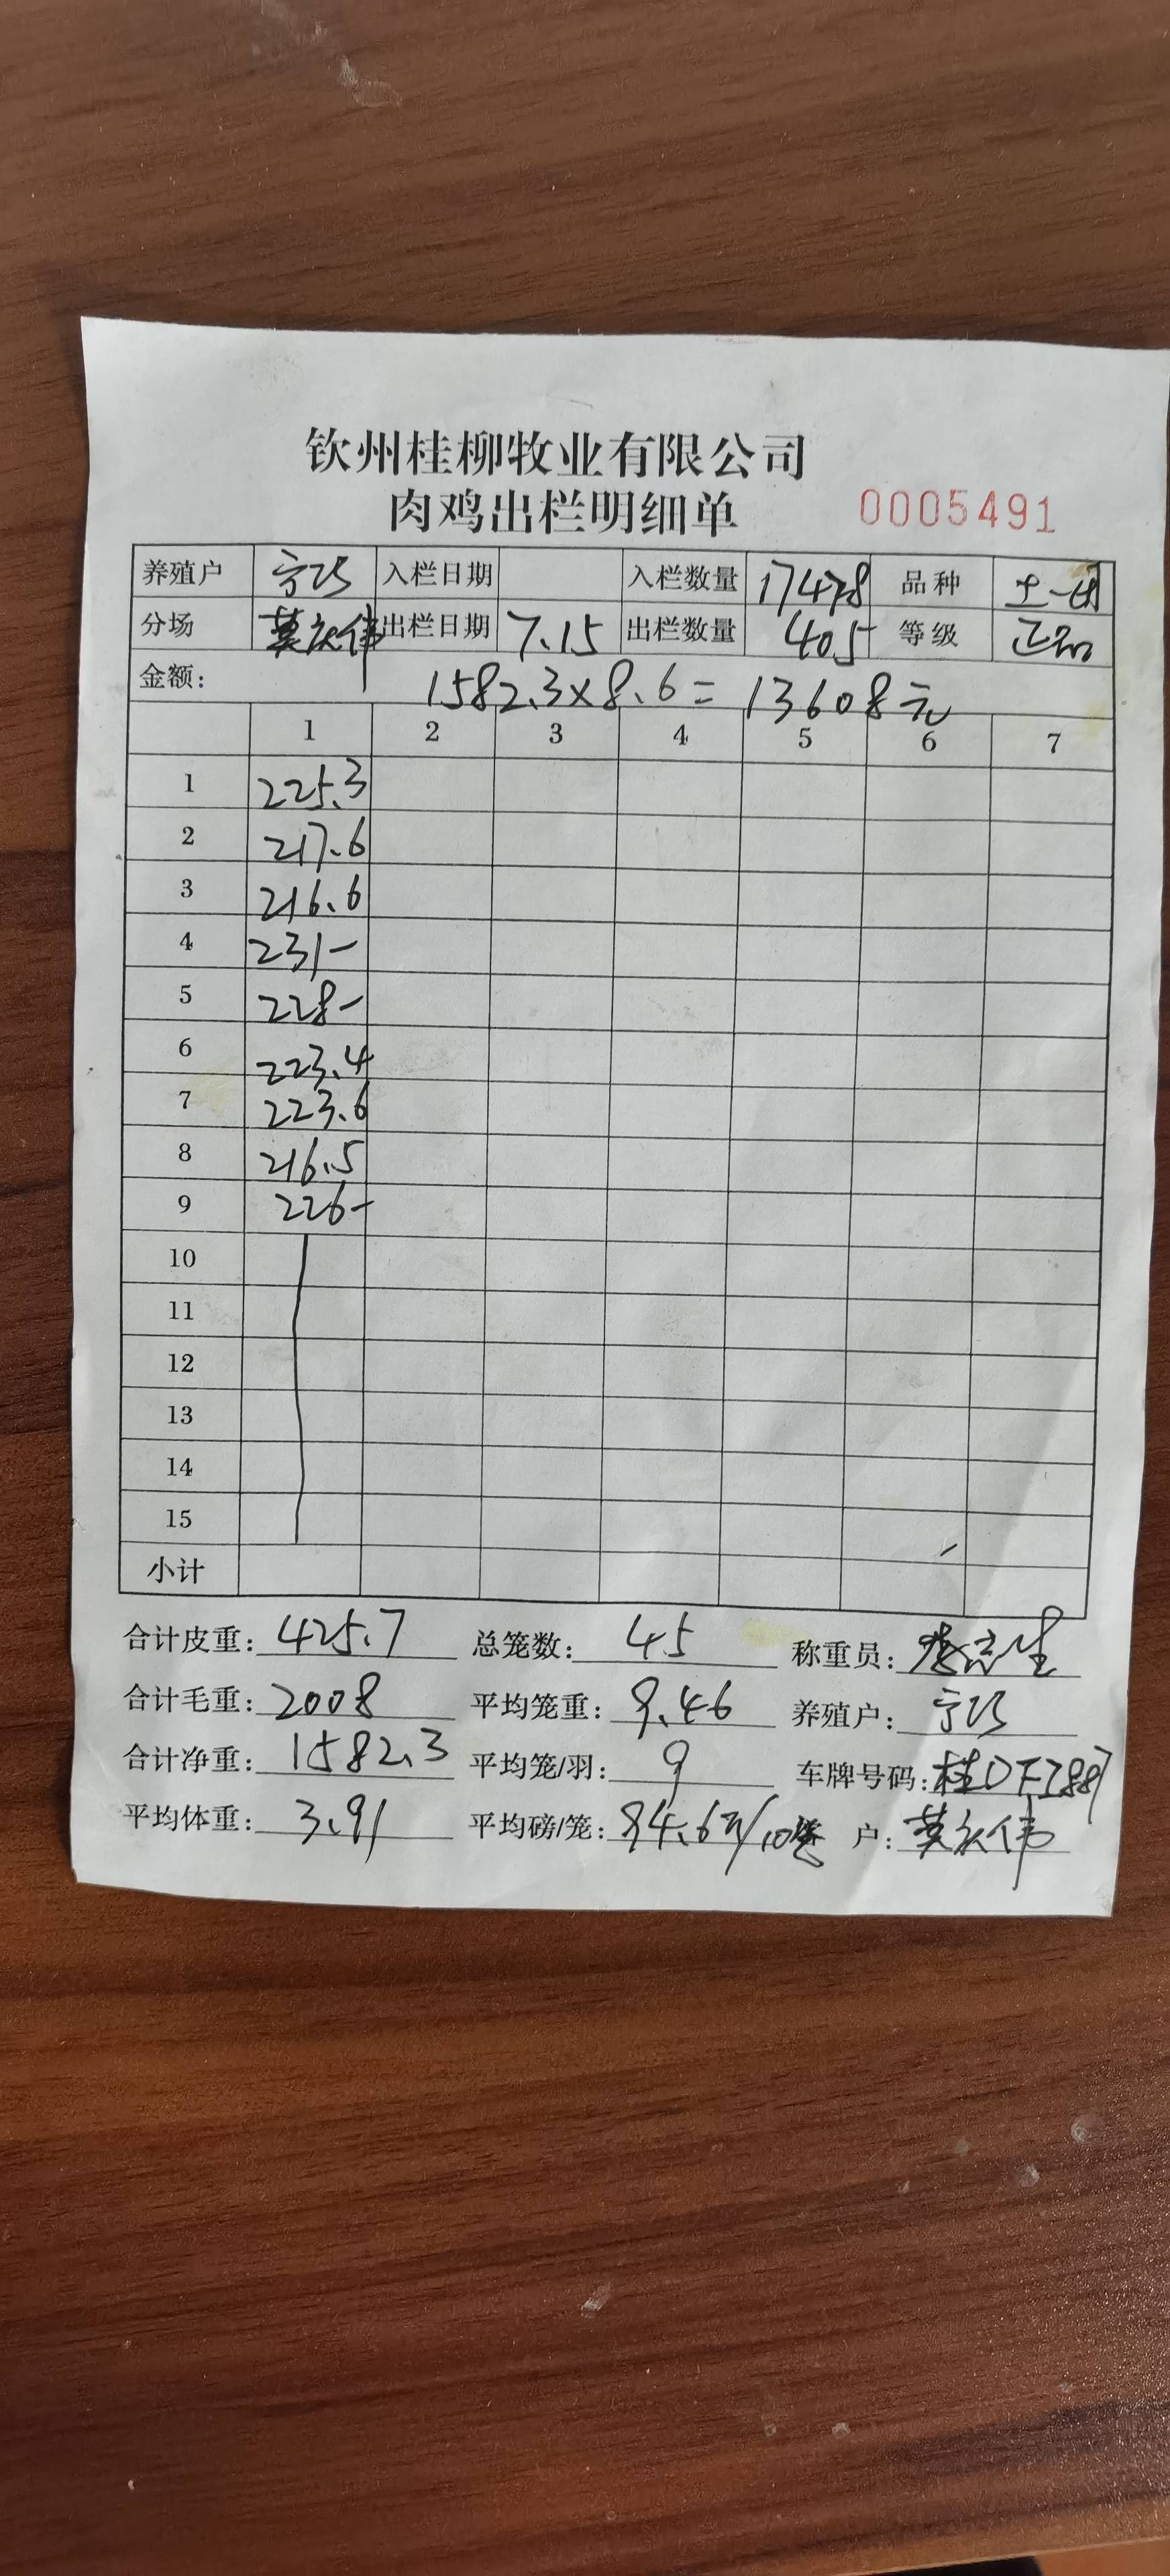 钦州桂柳牧业有限公司
肉鸡出栏明细单 0005491
养殖户 宁巧 入栏日期 入栏数量 17478 品种 土一
分场 莫庆伟 出栏日期 7.15 出栏数量 405 等级 正品
金额: 1582.3×8.6=13608元
1 2 3 4 5 6 7
1 225.3
2 217.6
3 216.6
4 231-
5 228-
6 223.4
7 223.6
8 216.5
9 226-
10
11
12
13
14
15
小计
合计皮重: 425.7 总笼数: 45 称重员:
合计毛重: 2008 平均笼重: 9.46 养殖户: 宁巧
合计净重: 1582.3 平均笼/羽: 9 车牌号码:
平均体重: 3.91 平均磅/笼: 94.6斤/10笼 户: 莫庆伟